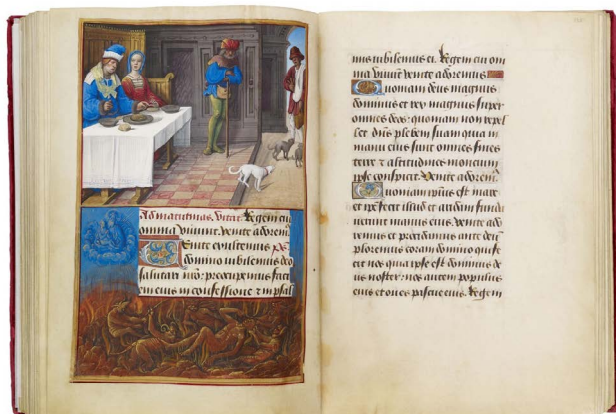 Ad matutinas. Regem cui
omnia viuunt. venite adorem̄.
Venite exultemus ps.
domino iubilemus deo
salutari nr̄o: preocupemus faci
em eius in confessione ⁊ in psal
mis iubilemus ei. Regem cui om
nia viuunt venite adoremus
Quoniam deus magnus
dominus et rex magnus super
omnes deos: quoniam non repel
let dn̄s plebem suam quia in
manu eius sunt omnes fines
terre ⁊ altitudines moncium
ipse conspicit. Venite adorem̄.
Quoniam ip̄ius est mare
et ipse fecit illud et aridam funda
uerunt manus eius. Venite ado
remus et procidamus ante deū
ploremus coram domino qui fe
cit nos quia ipse est dominus de
us noster: nos autem populus
eius et oues pascue eius. Regem